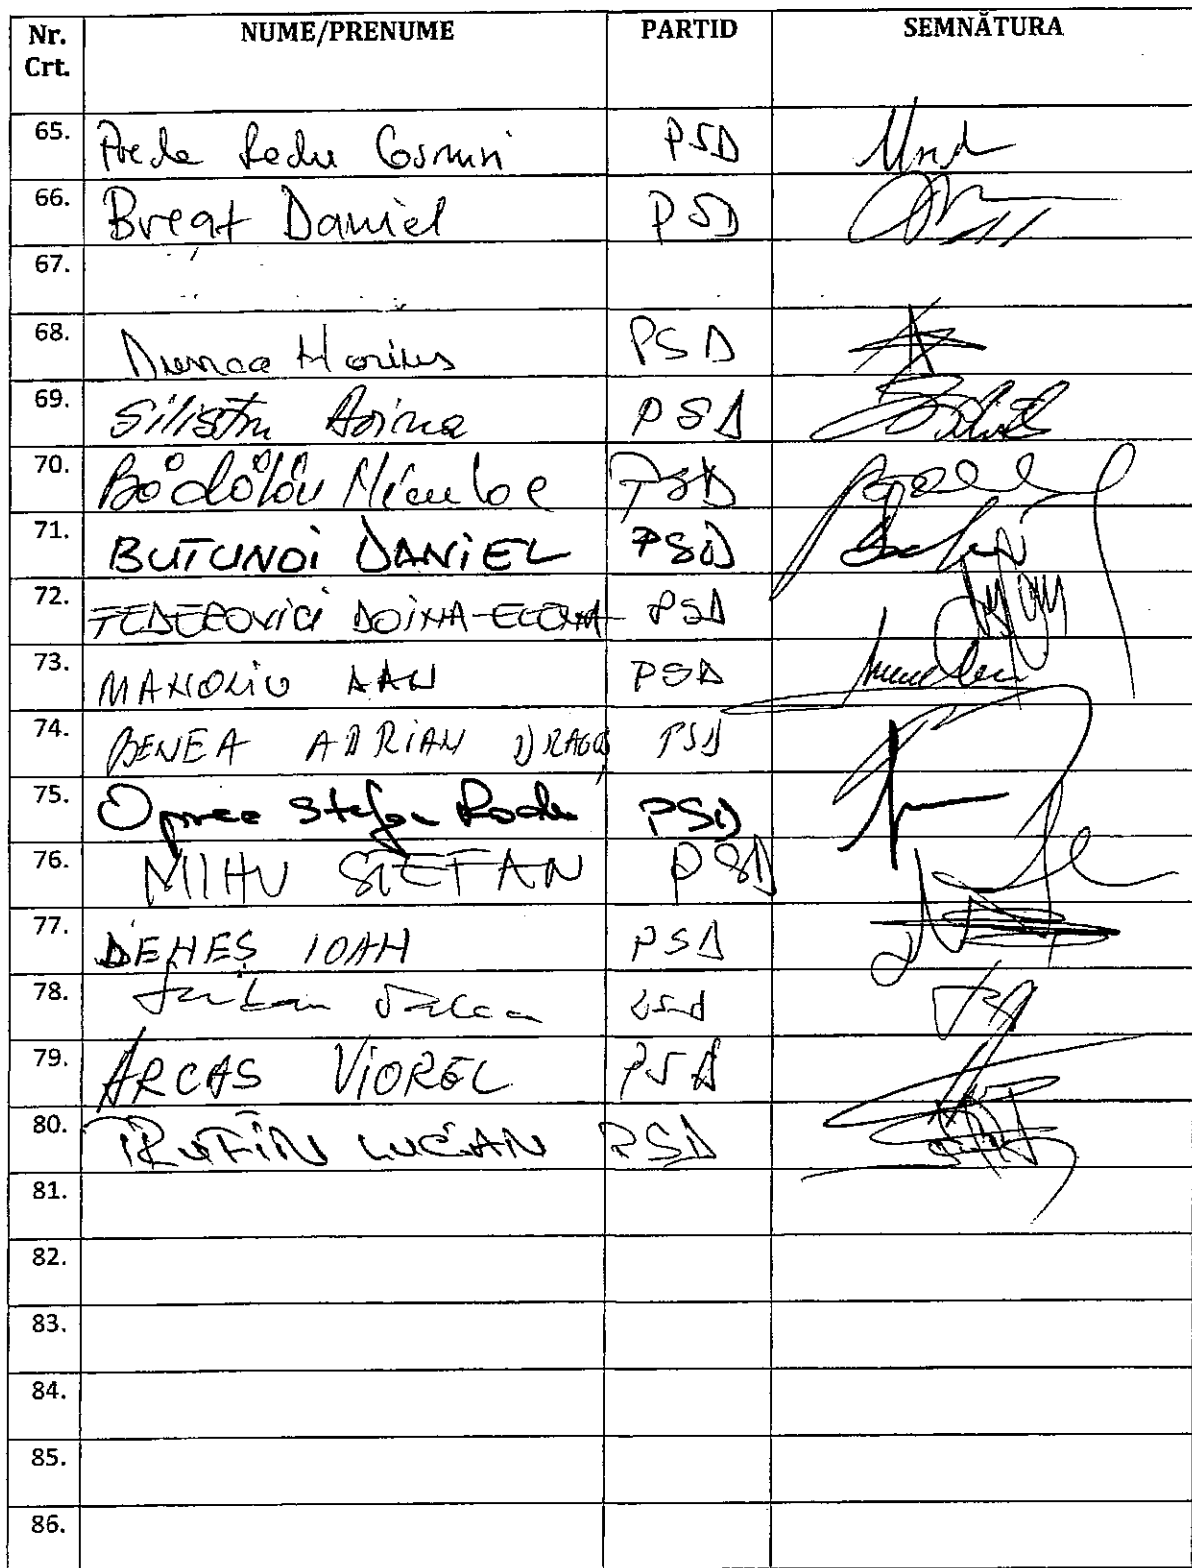 Nr. Crt. NUME/PRENUME PARTID SEMNĂTURA
65. Preda Radu Cosmin PSD
66. Breat Daniel PSD
67.
68. Horius PSD
69. Silistru Doina PSD
70. Bădălău Niculae PSD
71. BUTUNOI DANIEL PSD
72. FEDEROVICI DOINA-ELENA PSD
73. MANOLIU DAN PSD
74. BENEA ADRIAN DRAGOȘ PSD
75. Oprea Stefan Radu PSD
76. MIHU STEFAN PSD
77. DENEȘ IOAN PSD
78.
79. ARCAS VIOREL PSD
80. TRUFIN LUCIAN PSD
81.
82.
83.
84.
85.
86.